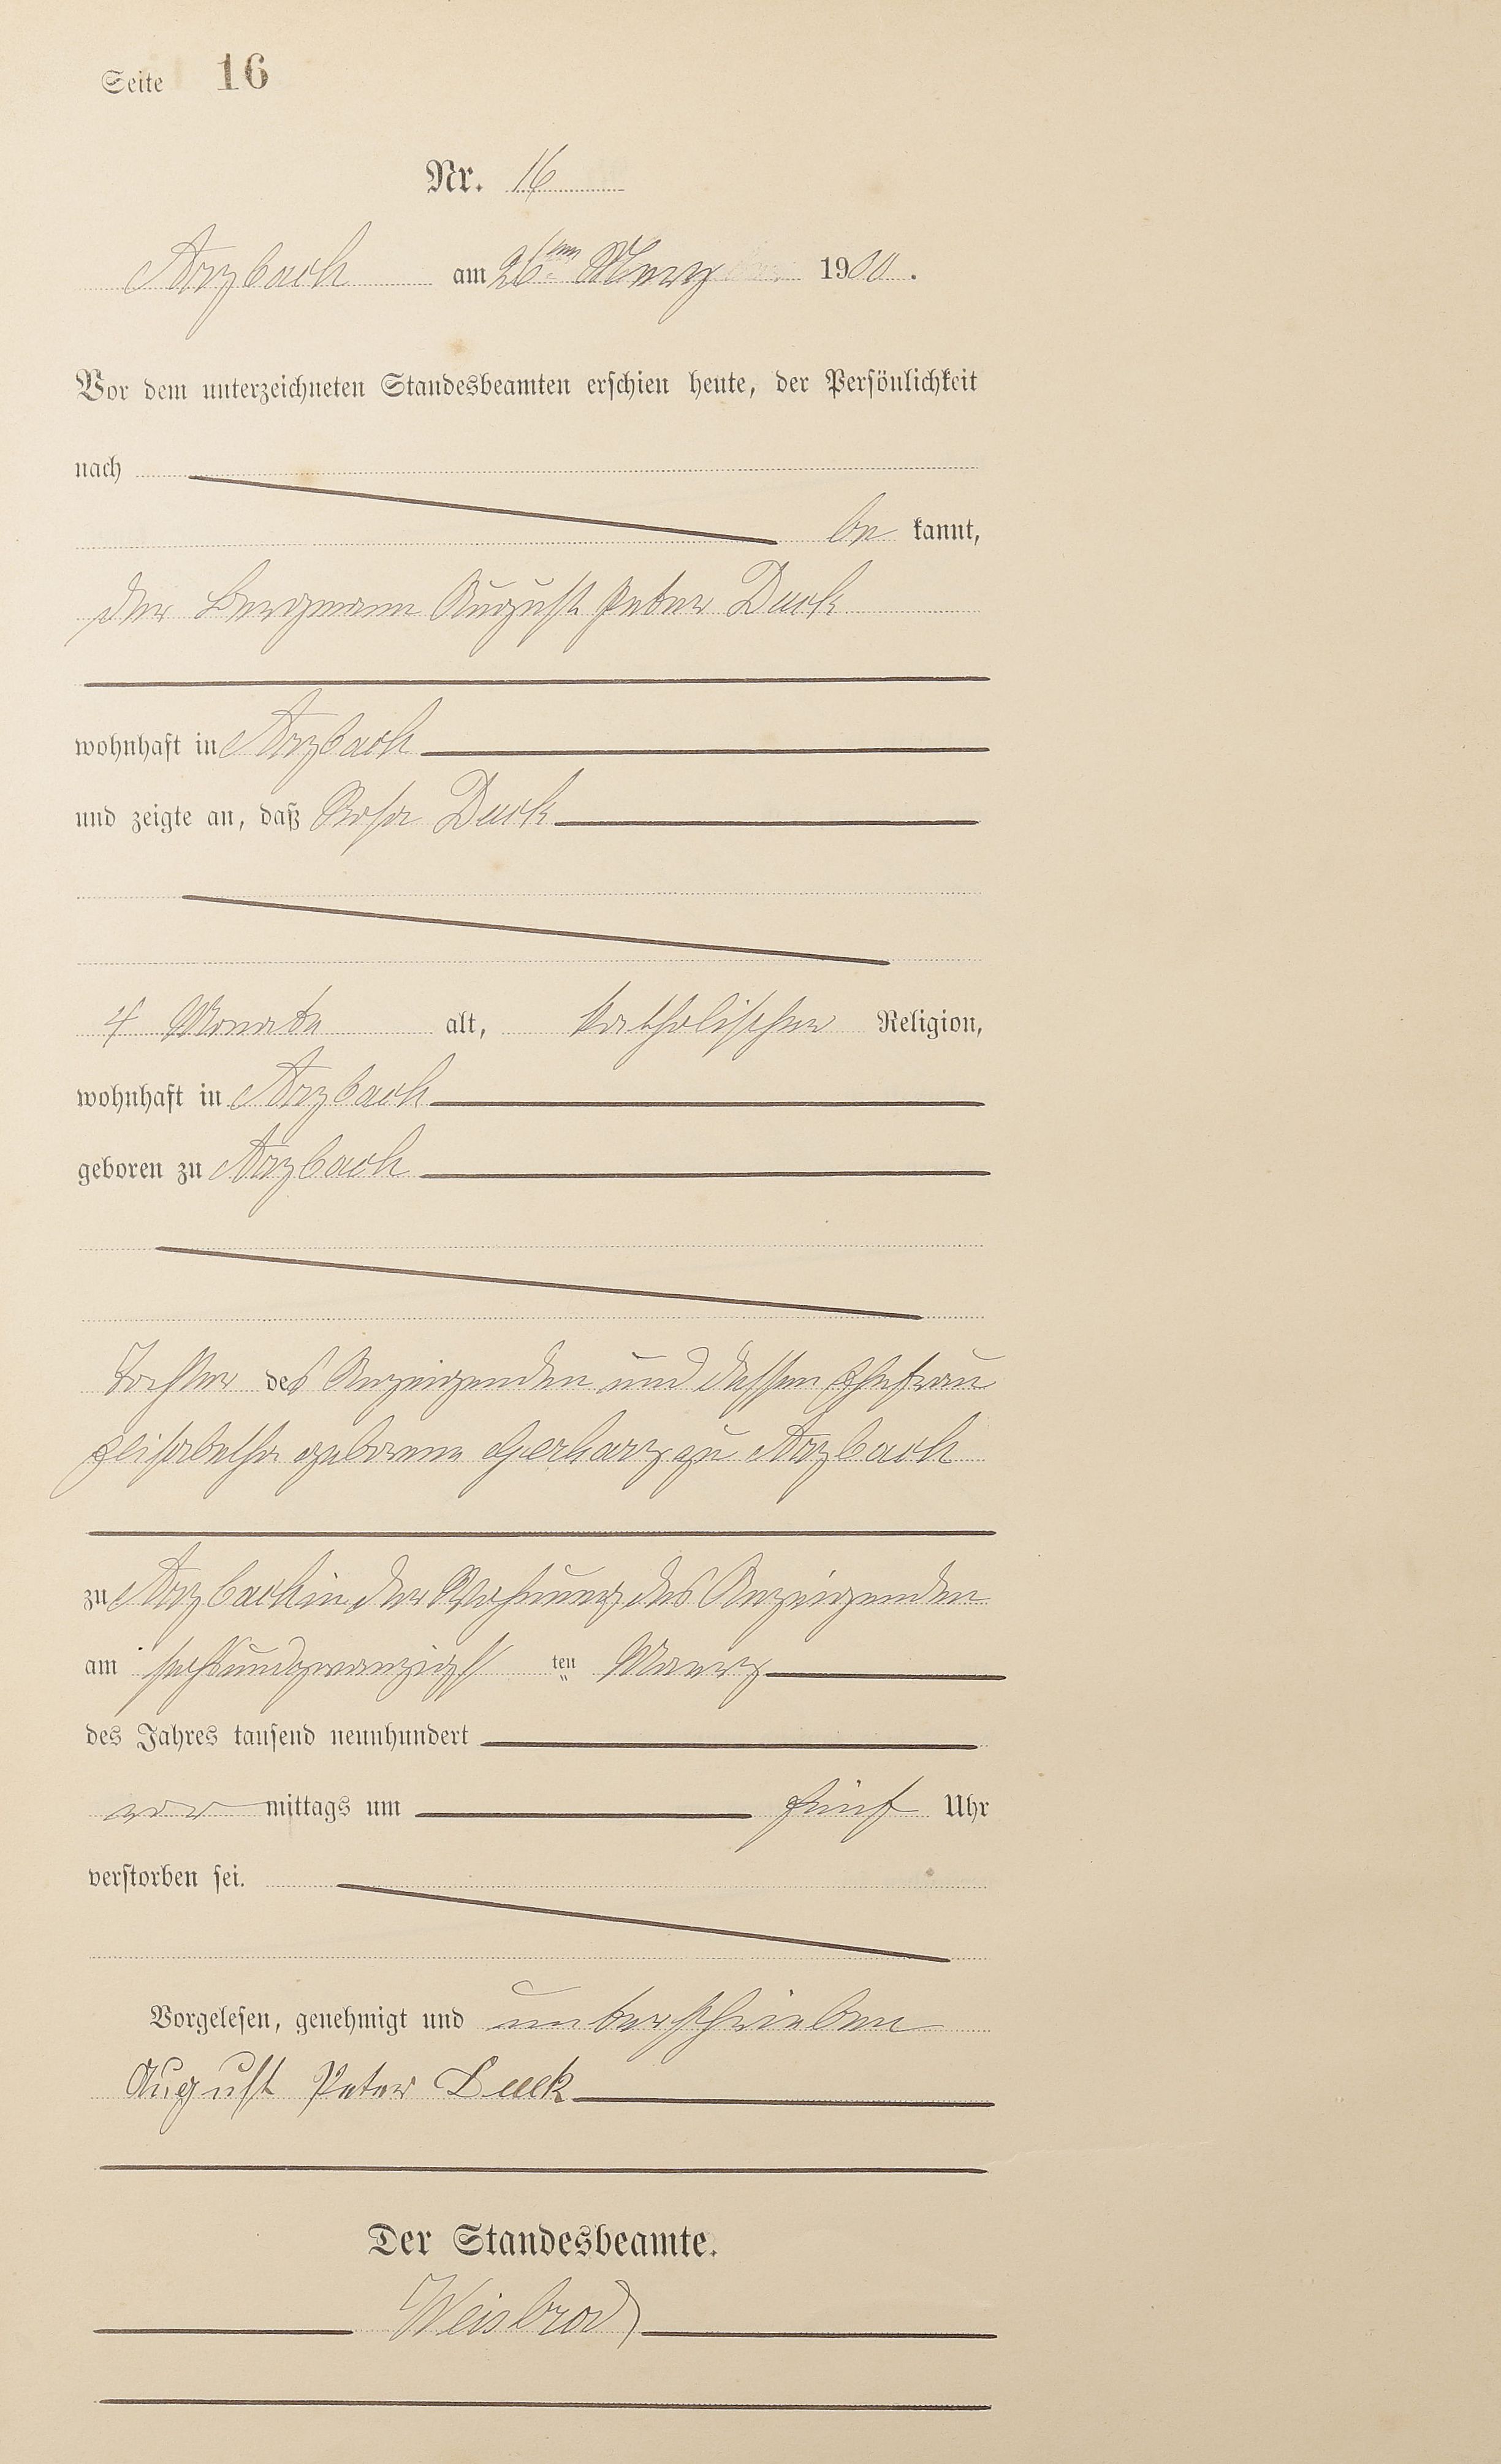 Seite 16
Nr. 16
Arzbach am 26ten März 1900.
Vor dem unterzeichneten Standesbeamten erschien heute, der Persönlichkeit
nach
be kannt,
der Bergmann August Peter Duck
wohnhaft in Arzbach
und zeigte an, daß Rosa Duck
4 Monate alt, katholischer Religion,
wohnhaft in Arzbach
geboren zu Arzbach
Tochter des Anzeigenden und dessen Ehefrau
Elisabetha geborene Gerharz zu Arzbach
zu Arzbach in der Wohnung des Anzeigenden
am sechsundzwanzigs ten Maerz
des Jahres tausend neunhundert
vor mittags um fünf Uhr
verstorben sei.
Vorgelesen, genehmigt und unterschrieben
August Peter Duck
Der Standesbeamte.
Weisbrod